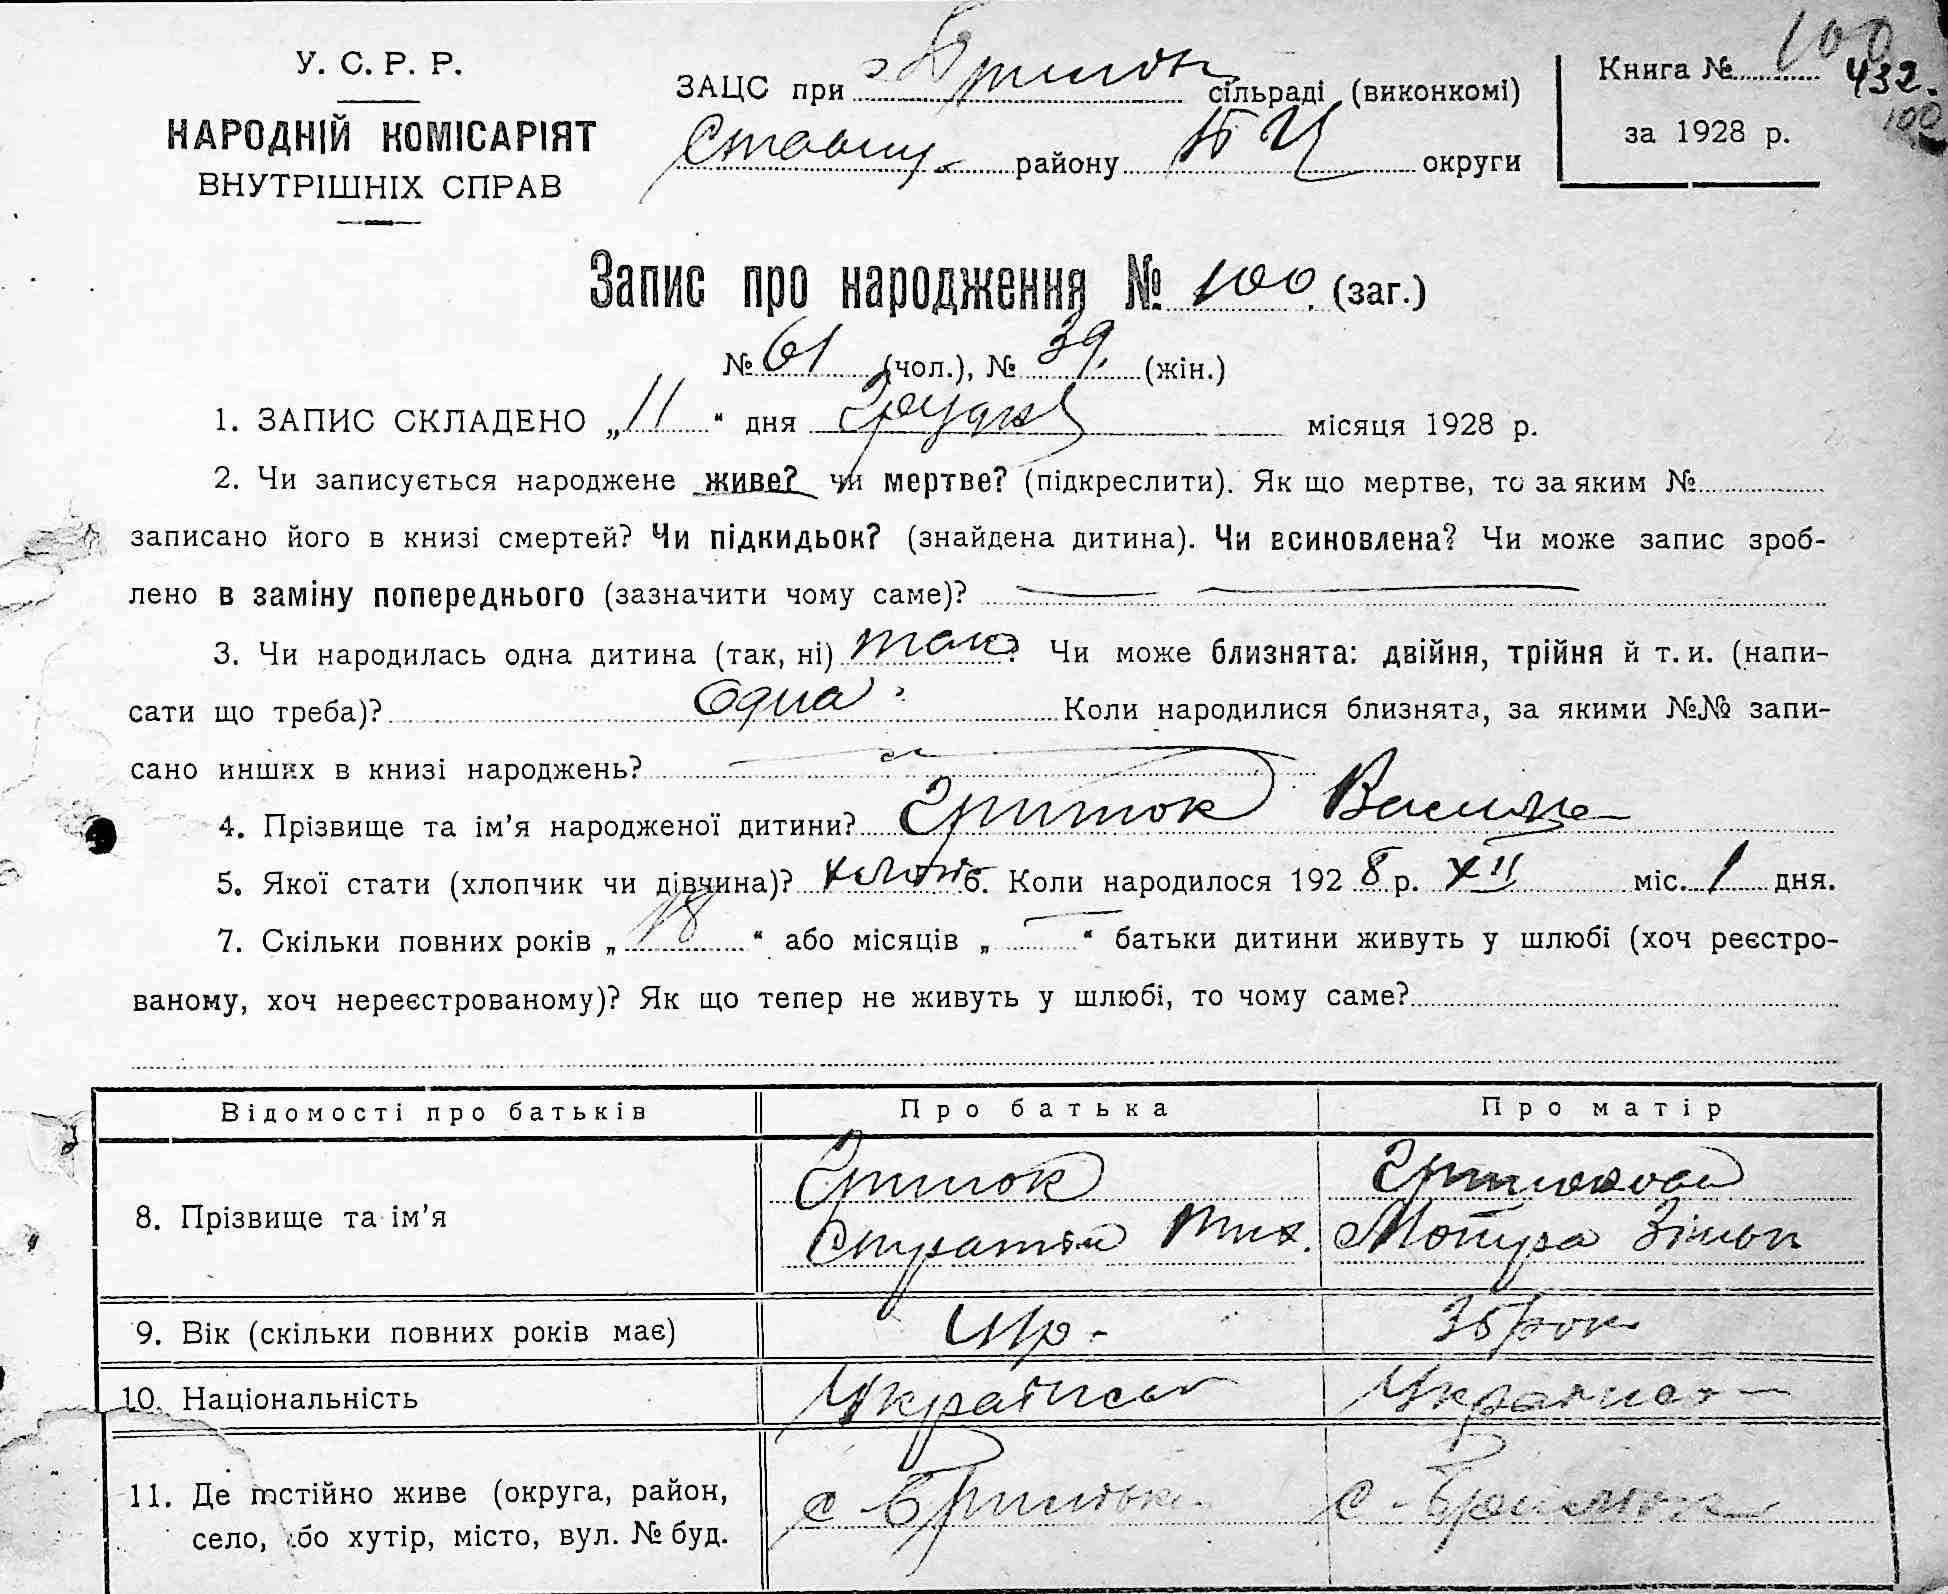 У. С. Р. Р.
НАРОДНІЙ КОМІСАРІЯТ
ВНУТРІШНІХ СПРАВ
ЗАЦС при сільраді (виконкомі)
району БЦ округи
Книга № 100
432.
100
за 1928 р.
Запис про народження № 100. (заг.)
№ 61 (чол.), № 39. (жін.)
1. ЗАПИС СКЛАДЕНО „11“ дня Грудня місяця 1928 р.
2. Чи записується народжене живе? чи мертве? (підкреслити). Як що мертве, то за яким №
записано його в книзі смертей? Чи підкидьок? (знайдена дитина). Чи всиновлена? Чи може запис зроб-
лено в заміну попереднього (зазначити чому саме)?
3. Чи народилась одна дитина (так, ні) так? Чи може близнята: двійня, трійня й т. и. (напи-
сати що треба)? Одна Коли народилися близнята, за якими №№ запи-
сано инших в книзі народжень?
4. Прізвище та ім’я народженої дитини? Гриток Василь
5. Якої стати (хлопчик чи дівчина)? хлопч 6. Коли народилося 1928 р. XII міс. 1 дня.
7. Скільки повних років „18“ або місяців „ “ батьки дитини живуть у шлюбі (хоч реєстро-
ваному, хоч нереєстрованому)? Як що тепер не живуть у шлюбі, то чому саме?
Відомості про батьків Про батька Про матір
8. Прізвище та ім’я Мотура
9. Вік (скільки повних років має)
10. Національність
11. Де постійно живе (округа, район,
село, або хутір, місто, вул. № буд.